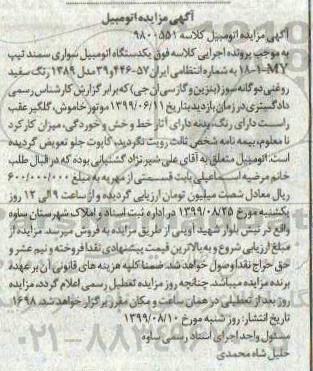 آگهی مزایده اتومبیل
آگهی مزایده اتومبیل کلاسه ۹۸۰۰۵۵۱
به موجب پرونده اجرایی کلاسه فوق یکدستگاه اتومبیل سواری سمند تیپ
۱۸-۱-MY به شماره انتظامی ایران ۵۷-۴۴۶و۳۹ مدل ۱۳۸۹ رنگ سفید
روغنی دوگانه سوز (بنزین و گاز سی ان جی) که برابر گزارش کارشناس رسمی
دادگستری در زمان بازدید بتاریخ ۱۳۹۹/۰۶/۱۱ موتور خاموش، گلگیر عقب
راست دارای رنگ، بدنه دارای آثار خط و خش و خوردگی، میزان کارکرد
نا معلوم، بیمه نامه شخص ثالث رویت نگردید، کاپوت جلو تعویض گردیده
است. اتومبیل متعلق به آقای علی شیرنژاد گشتیانی بوده که در قبال طلب
خانم مرضیه اسماعیلی بابت قسمتی از مهریه به مبلغ ۶۰۰/۰۰۰/۰۰۰
ریال معادل شصت میلیون تومان ارزیابی گردیده و از ساعت ۹ الی ۱۲ روز
یکشنبه مورخ ۱۳۹۹/۰۸/۲۵ در اداره ثبت اسناد و املاک شهرستان ساوه
واقع در نبش بلوار شهید آوینی از طریق مزایده به فروش میرسد. مزایده از
مبلغ ارزیابی شروع و به بالاترین قیمت پیشنهادی نقدا فروخته و نیم عشر و
حق حراج نقدا وصول خواهد شد. ضمنا کلیه هزینه های قانونی آن بر عهده
برنده مزایده میباشد. چنانچه روز مزایده تعطیل رسمی اعلام گردد، مزایده
روز بعد از تعطیلی در همان ساعت و مکان مقرر برگزار خواهد شد. ۱۶۹۸
تاریخ انتشار: روز شنبه مورخ ۱۳۹۹/۰۸/۱۰
مسئول واحد اجرای اسناد رسمی ساوه
خلیل شاه محمدی